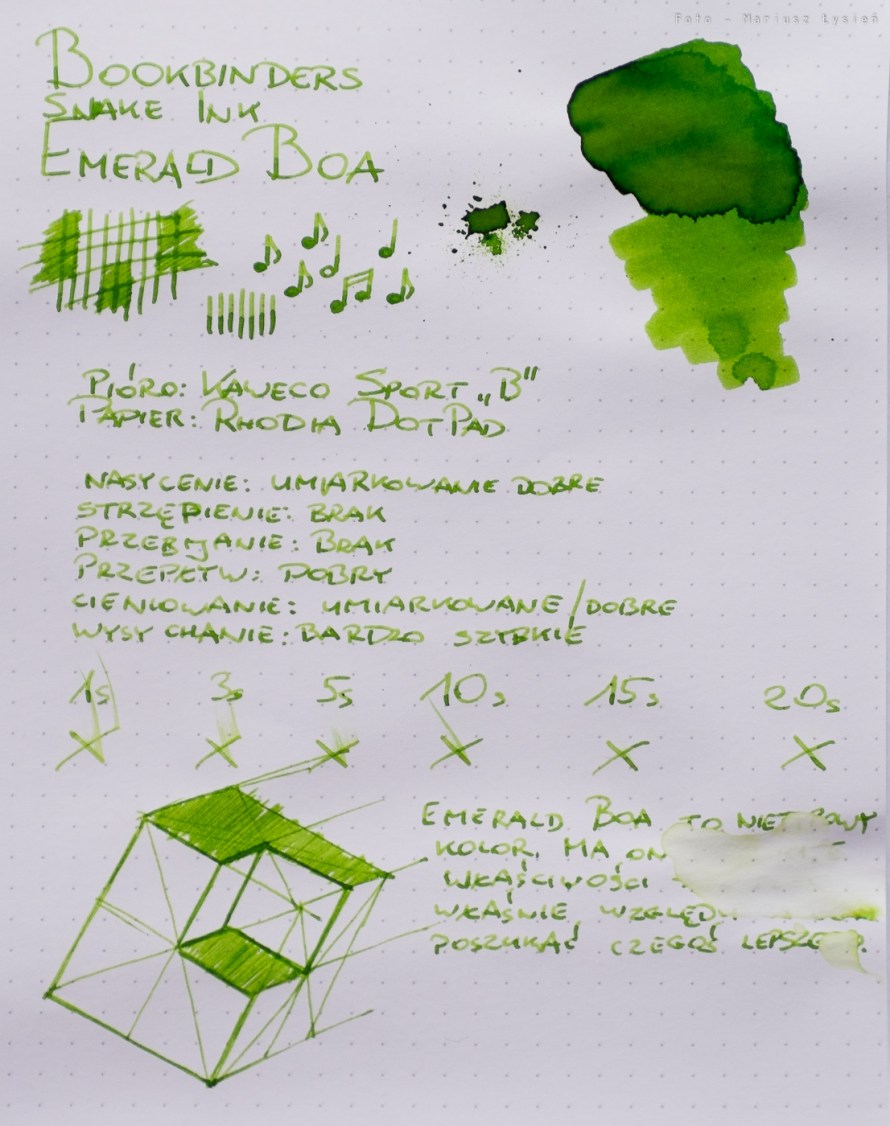 Foto - Mariusz Łysień
BOOKBINDERS
SNAKE INK
EMERALD BOA
PIÓRO: KAWECO SPORT „B”
PAPIER: RHODIA DOTPAD
NASYCENIE: UMIARKOWANIE DOBRE
STRZĘPIENIE: BRAK
PRZEBIJANIE: BRAK
PRZEPŁYW: DOBRY
CIENIOWANIE: UMIARKOWANE/DOBRE
WYSYCHANIE: BARDZO SZYBKIE
1s 3s 5s 10s 15s 20s
X X X X X X
EMERALD BOA TO
KOLOR. MA ON
WŁAŚCIWOŚCI
WŁAŚNIE
POSZUKAĆ CZEGOŚ